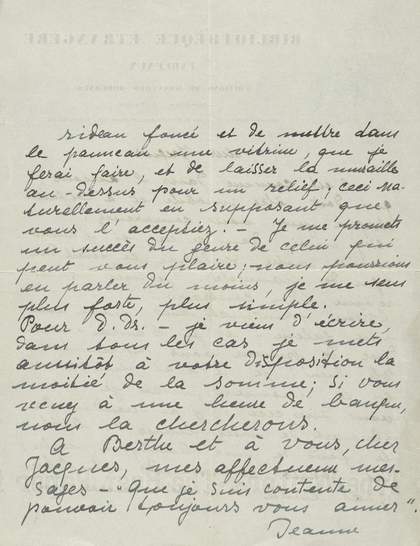 rideau foncé et de mettre dans
le panneau une vitrine, que je
ferai faire, et de laisser la muraille
au-dessus pour un relief; ceci na-
turellement en supposant que
vous l'acceptiez. – Je me promets
un succès du genre de celui qui
peut vous plaire; nous pourrions
en parler du moins, je me sens
plus forte, plus simple.
Pour D.Ds. – je viens d'écrire,
dans tous les cas je mets
aussitôt à votre disposition la
moitié de la somme; si vous
venez à une heure de banque,
nous la chercherons.
A Berthe et à vous, cher
Jacques, mes affectueux mes-
sages – "Que je suis contente de
pouvoir toujours vous aimer".
Jeanne